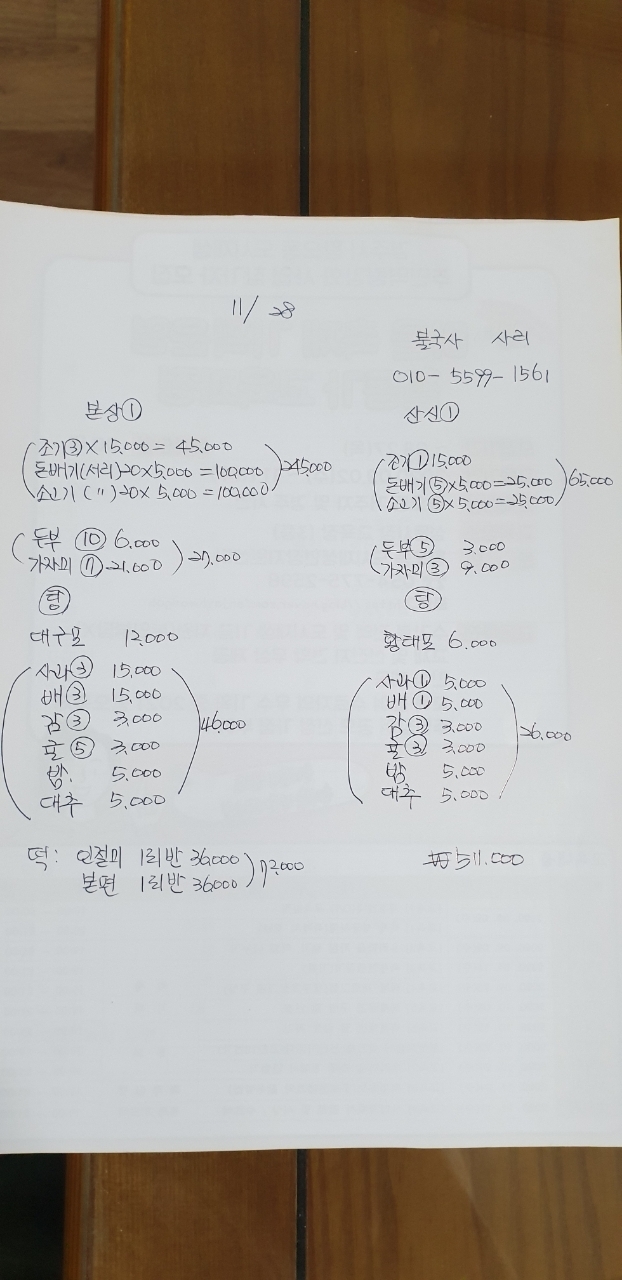 11/28
불국사 사리
010-5599-1561
본상①
조기③×15,000=45,000
돈배기(서리)20×5,000=100,000
소고기(〃)20×5,000=100,000
245,000
두부 ⑩ 6,000
가자미 ⑦ 21,000
27,000
탕
대구포 12,000
사과③ 15,000
배③ 15,000
감③ 3,000
귤⑤ 3,000
밤 5,000
대추 5,000
46,000
떡: 인절미 1되반 36,000
본편 1되반 36,000
72,000
산신①
조기① 15,000
돈배기⑤×5,000=25,000
소고기⑤×5,000=25,000
65,000
두부⑤ 3,000
가자미③ 9,000
탕
황태포 6,000
사과① 5,000
배① 5,000
감③ 3,000
귤③ 3,000
밤 5,000
대추 5,000
26,000
₩511,000